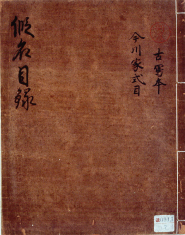 古寫本
今川家式目
假名目錄